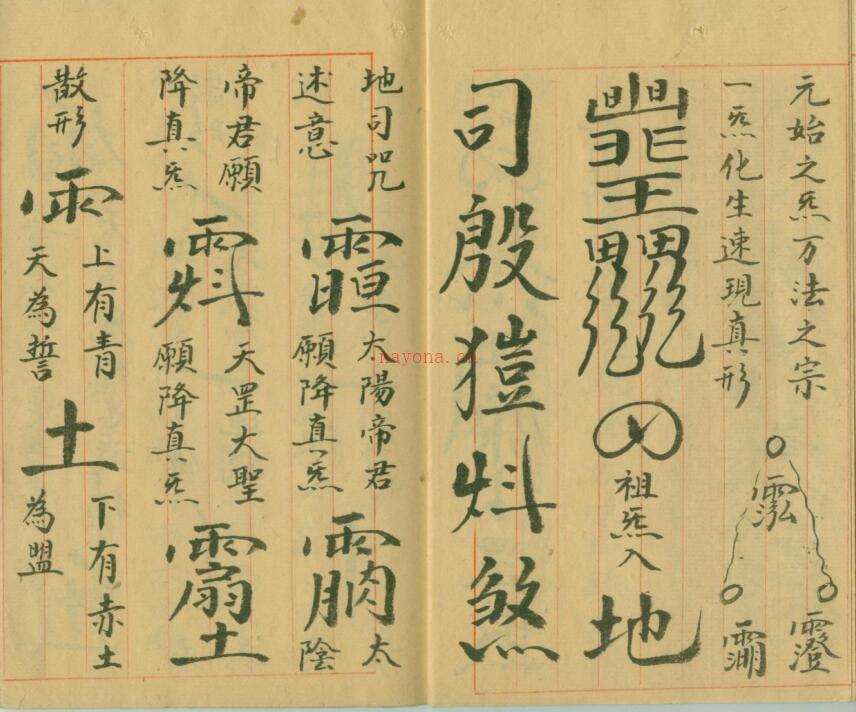 元始之炁万法之宗
一炁化生速現真形
霐
祖炁入
地
司殷炓煞
地司咒
述意
太陽帝君
願降真炁
太
陰
帝君願
降真炁
天罡大聖
願降真炁
散形
雨
上有青
天為誓
土
下有赤土
為盟
nayona.cn